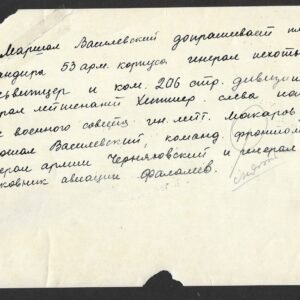 Маршал Василевский допрашивает пл
андира 53 арм. корпуса генерал пехоты
ьвитцер и ком. 206 стр. дивизии
рал лейтенант Хиттер. слева на
военного совета ген. лейт. Макаров
ршал Василевский, команд. фронтом
ерал армии Черняховский и генерал
ковник авиации Фалалеев.